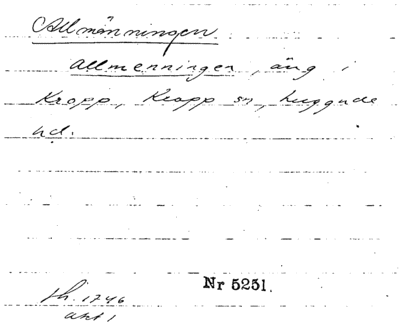 Allmänningen
allmenningen, äng i
Kropp, Kropp sn, Luggude
hd.
Nr 5251.
sh. 1746
akt 1